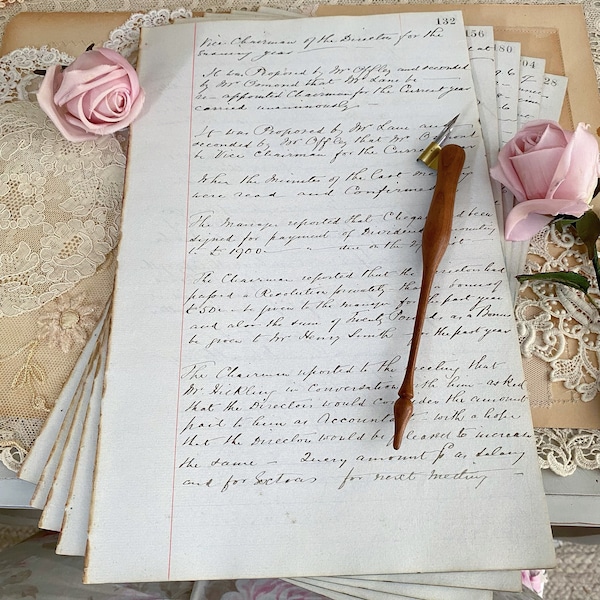 132
156
180
04
28
Vice Chairman of the Directors for the
ensuing year
It was Proposed by Mr Offley and seconded
by Mr Osmond that Mr Lane be
re-appointed Chairman for the Current year
carried unanimously
It was Proposed by Mr Lane and
seconded by Mr Offley that Mr
be Vice Chairman for the Curre
When the Minutes of the last
were read and Confirmed
The Manager reported that Cheques had been
signed for payment of Dividend
to £1700 due on the
The Chairman reported that the Directors had
passed a Resolution privately that a Bonus of
£50 be given to the manager for the past year
and also the sum of Twenty Pounds as a Bonus
be given to Mr Henry Smith for the past year
The Chairman reported to the Meeting that
Mr Hickling in Conversation with him asked
that the Directors would Consider the amount
paid to him as Accountant with a hope
that the Directors would be pleased to increase
the same Query amount p as Salary
and for Extras for next Meeting